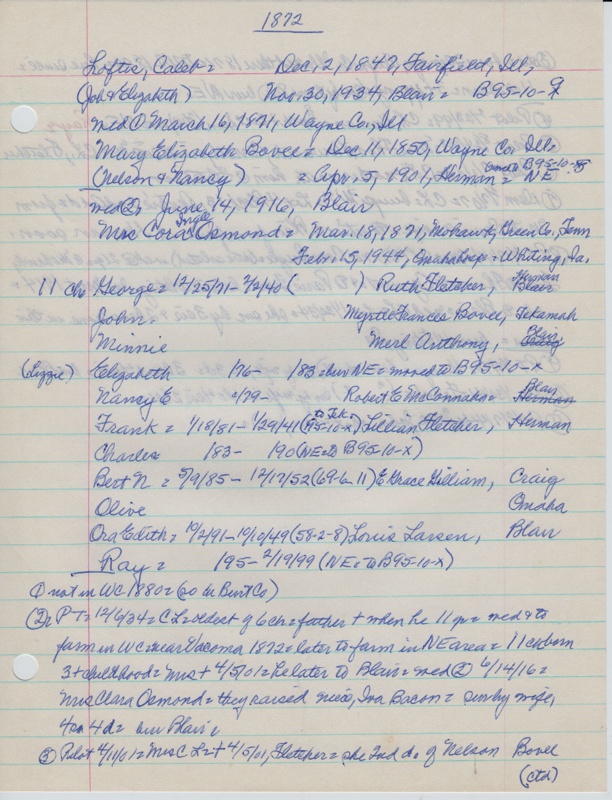 1872
Loftis, Caleb = Dec, 2, 1847, Fairfield, Ill,
(Job & Elizabeth) Nov. 30, 1934, Blair = B95-10-9
med ① March 16, 1871, Wayne Co, Ill
Mary Elizabeth Bovee = Dec 11, 1850, Wayne Co, Ill,
(Nelson & Nancy) = Apr. 5, 1901, Herman = NE B95-10-8
med ②, June 14, 1916, Blair
Mrs Cora Ingle Osmond = Mar. 18, 1871, Mohawk, Green Co, Tenn
Febr. 15, 1944, Omaha hosp = Whiting, Ia,
11 ch George = 12/25/71 - 2/2/40 ( ) Ruth Fletcher, Herman Blair
John = Myrtle Frances Bovee, Tekamah
Minnie Merl Anthony, Blair Craig
(Lizzie) Elizabeth /76 - /83 = bur NE = moved to B95-10-x
Nancy E = /79 - Robert E McConnaha = Blair Herman
Frank = 1/18/81 - 1/29/41 (95-10-x) Lillian Fletcher, Herman
Charles /83 - /90 (NE = to B95-10-x)
Bert N = 5/9/85 - 12/17/52 (69-6-11) E Grace Gilliam, Craig
Olive Omaha
Ora Edith = 10/2/91 - 10/10/49 (58-2-8) Louis Larsen, Blair
Ray = /95 - 2/19/99 (NE = to B95-10-x)
① not in WC 1880 = (so in Burt Co)
② PT = 12/6/34 = C L = oldest of 6 ch = father + when he 11 yr = med & to
farm in WC near Vacoma 1872 = later to farm in NE area = 11 ch born
3 + childhood = Mrs + 4/5/01 = he later to Blair = med ② 6/14/16 =
Mrs Clara Osmond = they raised niece, Iva Bacon = surv by wife,
4 sn 4 d = bur Blair =
③ Pilot 4/11/01 = Mrs C L = + 4/5/01, Fletcher = she 2nd da of Nelson Bovee
(ctd)